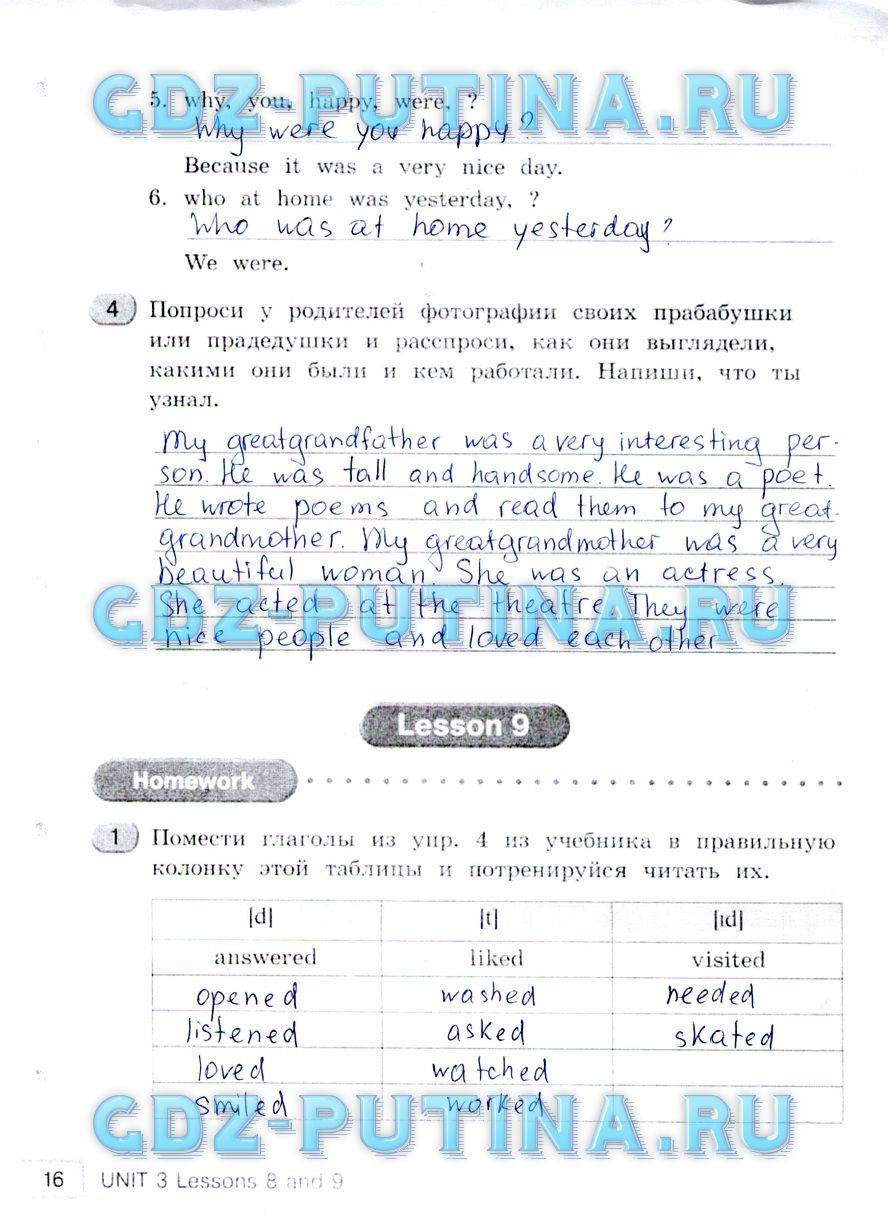 GDZ-PUTINA.RU
5. why, you, happy, were, ?
Why were you happy?
Because it was a very nice day.
6. who at home was yesterday, ?
Who was at home yesterday?
We were.
4 Попроси у родителей фотографии своих прабабушки
или прадедушки и расспроси, как они выглядели,
какими они были и кем работали. Напиши, что ты
узнал.
My greatgrandfather was a very interesting per-
son. He was tall and handsome. He was a poet.
He wrote poems and read them to my great-
grandmother. My greatgrandmother was a very
beautiful woman. She was an actress.
She acted at the theatre. They were
GDZ-PUTINA.RU
nice people and loved each other
Lesson 9
Homework
1 Помести глаголы из упр. 4 из учебника в правильную
колонку этой таблицы и потренируйся читать их.
[d] [t] [ɪd]
answered liked visited
opened washed needed
listened asked skated
loved watched
smiled worked
GDZ-PUTINA.RU
16 UNIT 3 Lessons 8 and 9